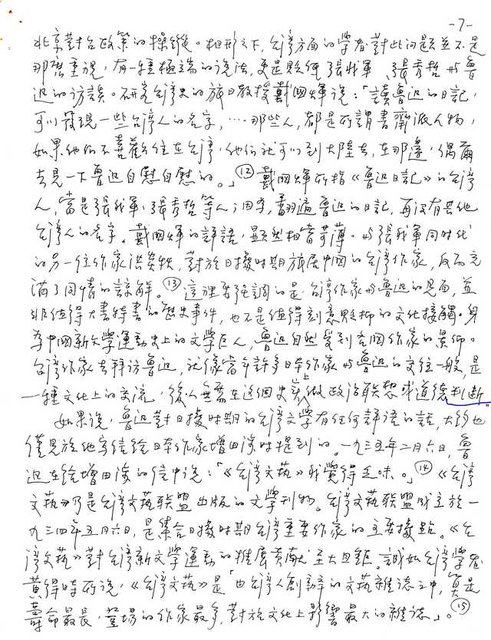 -7-
北京對台政策的操縱。相形之下，台灣方面的學者對此問題並不是
那麼重視，有一種極端的說法，更是貶低張我軍、張秀哲與魯
迅的訪談。研究台灣史的旅日教授戴國煇說：「讀魯迅的日記，
可以發現一些台灣人的名字，…那些人，都是所謂書齋派人物，
如果他們不喜歡住在台灣，他們就可以到大陸去，在那邊，偶爾
去見一下魯迅自慰自慰的。」⑫戴國煇所指《魯迅日記》的台灣
人，當是張我軍、張秀哲等人；因為，翻遍魯迅的日記，再沒有其他
台灣人的名字。戴國煇的評語，顯然相當苛薄。與張我軍同時代
的另一位作家洪炎秋，對於日據時期旅居中國的台灣作家，反而充
滿了同情的諒解。⑬這裡要強調的是，台灣作家與魯迅的見面，並
非值得大書特書的歷史事件，也不是值得刻意貶抑的文化接觸。身
為中國新文學運動史上的文學巨人，魯迅自然受到台灣作家的景仰。
台灣作家去拜訪魯迅，就像當年許多日本作家與魯迅的交往一般，是
一種文化上的交流，後人無需在這個史實上做政治聯想或道德判斷
如果說，魯迅對日據時期的台灣文學有任何評語的話，大約也
僅見於他寫信給日本作家增田涉時提到的。一九三五年二月六日，魯
迅在給增田涉的信中說：「《台灣文藝》我覺得乏味。」⑭《台灣
文藝》乃是台灣文藝聯盟出版的文學刊物。台灣文藝聯盟成立於一
九三四年五月六日，是集合日據時期台灣重要作家的主要據點。《台
灣文藝》對台灣新文學運動的推展貢獻至大且鉅，誠如台灣學者
黃得時所說，《台灣文藝》是「由台灣人創辦的文藝雜誌之中，算是
壽命最長，登場的作家最多，對於文化上影響最大的雜誌」。⑮